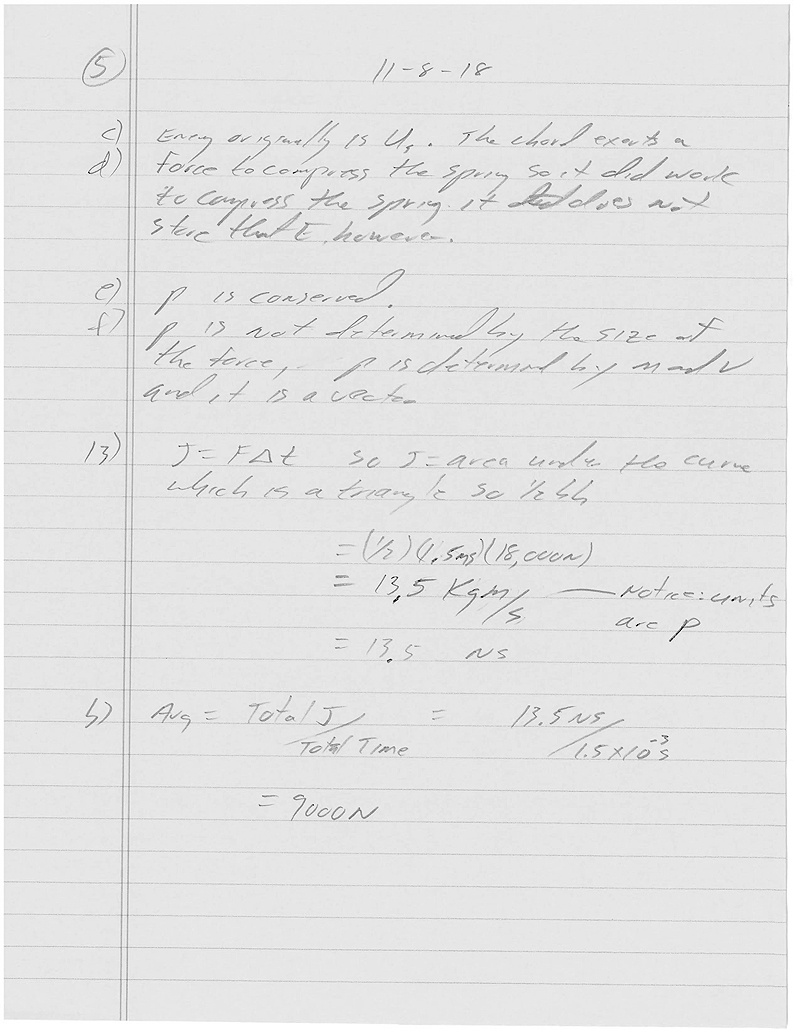 5 11-8-18
c) Energy originally is Us. The chord exerts a
d) force to compress the spring so it did work
to compress the spring. it does not
store that E, however.
e) p is conserved.
f) p is not determined by the size of
the force, p is determined by m and v
and it is a vector
13) J = FΔt so J = area under the curve
which is a triangle so ½ bh
= (½)(1.5ms)(18,000N)
= 13.5 Kgm/s — Notice: units
are p
= 13.5 NS
b) Avg = Total J / Total Time = 13.5 NS / 1.5x10⁻³s
= 9000N